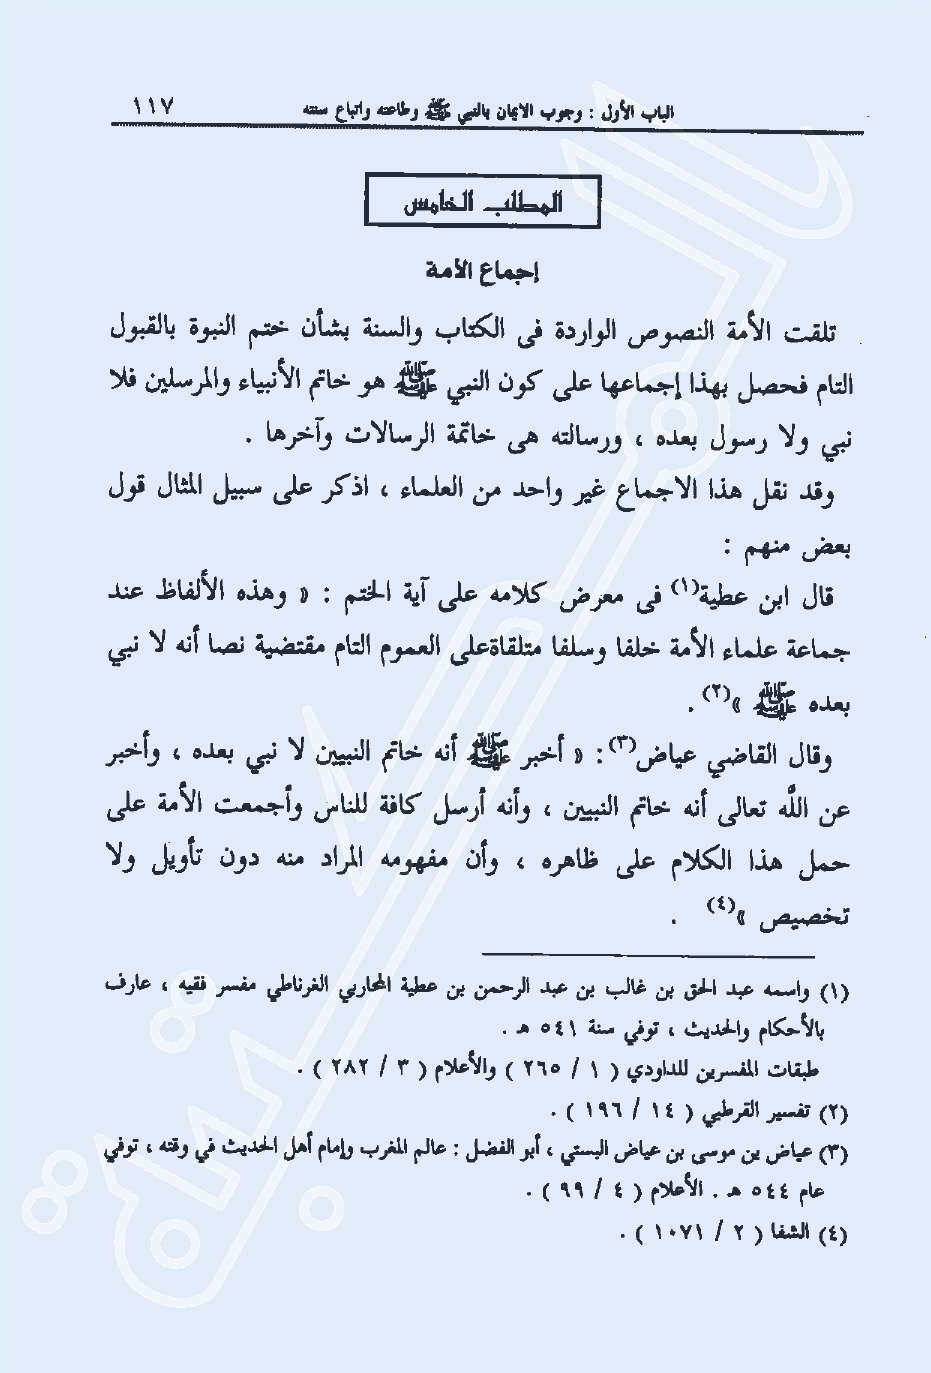 الباب الأول : وجوب الايمان بالنبي ﷺ وطاعته واتباع سنته ١١٧
المطلب الخامس
إجماع الأمة
تلقت الأمة النصوص الواردة فى الكتاب والسنة بشأن ختم النبوة بالقبول
التام فحصل بهذا إجماعها على كون النبي ﷺ هو خاتم الأنبياء والمرسلين فلا
نبي ولا رسول بعده ، ورسالته هى خاتمة الرسالات وآخرها .
وقد نقل هذا الاجماع غير واحد من العلماء ، اذكر على سبيل المثال قول
بعض منهم :
قال ابن عطية(١) فى معرض كلامه على آية الختم : « وهذه الألفاظ عند
جماعة علماء الأمة خلفا وسلفا متلقاةعلى العموم التام مقتضية نصا أنه لا نبي
بعده ﷺ »(٢) .
وقال القاضي عياض(٣) : « أخبر ﷺ أنه خاتم النبيين لا نبي بعده ، وأخبر
عن اللَّه تعالى أنه خاتم النبيين ، وأنه أرسل كافة للناس وأجمعت الأمة على
حمل هذا الكلام على ظاهره ، وأن مفهومه المراد منه دون تأويل ولا
تخصيص »(٤) .
(١) واسمه عبد الحق بن غالب بن عبد الرحمن بن عطية المحاربي الغرناطي مفسر فقيه ، عارف
بالأحكام والحديث ، توفي سنة ٥٤١ هـ .
طبقات المفسرين للداودي ( ١ / ٢٦٥ ) والأعلام ( ٣ / ٢٨٢ ) .
(٢) تفسير القرطبي ( ١٤ / ١٩٦ ) .
(٣) عياض بن موسى بن عياض البستي ، أبو الفضل : عالم المغرب وإمام أهل الحديث في وقته ، توفي
عام ٥٤٤ هـ . الأعلام ( ٤ / ٩٩ ) .
(٤) الشفا ( ٢ / ١٠٧١ ) .